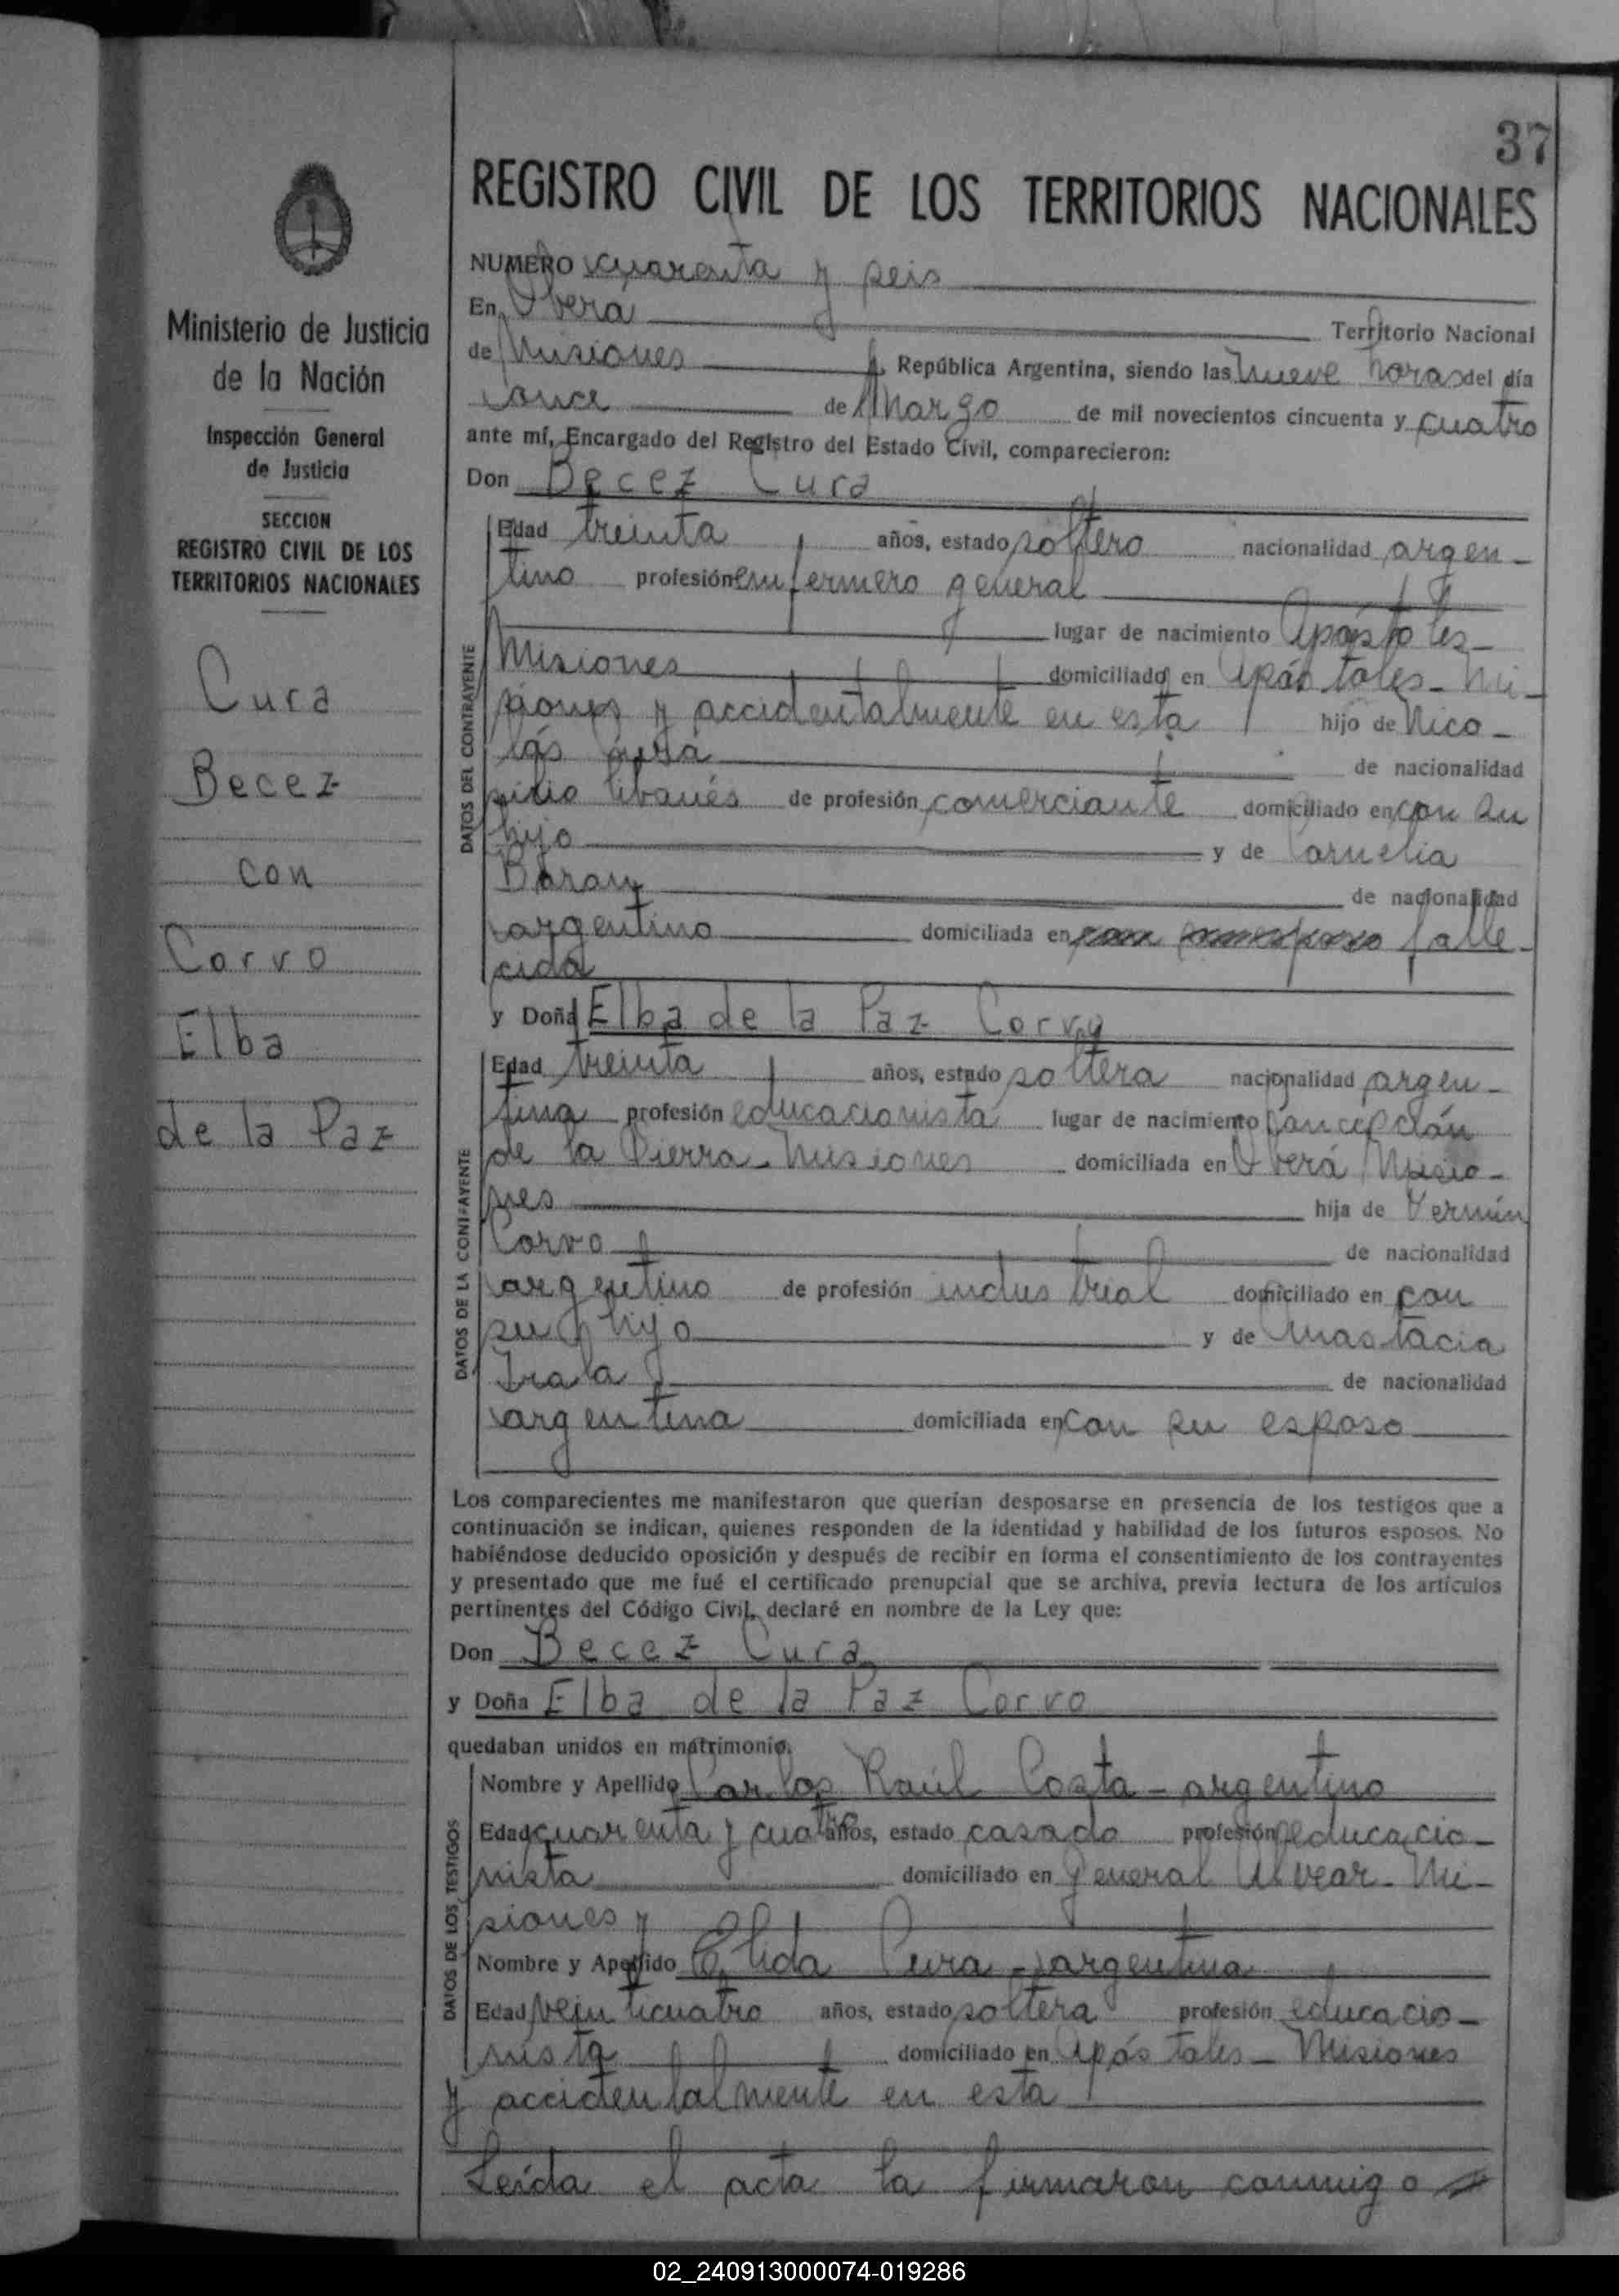 37
REGISTRO CIVIL DE LOS TERRITORIOS NACIONALES
Ministerio de Justicia
de la Nación
Inspección General
de Justicia
SECCION
REGISTRO CIVIL DE LOS
TERRITORIOS NACIONALES
Cura
Becez
con
Corvo
Elba
de la Paz
NUMERO cuarenta y seis
En Oberá Territorio Nacional
de Misiones República Argentina, siendo las nueve horas del día
once de Marzo de mil novecientos cincuenta y cuatro
ante mí, Encargado del Registro del Estado Civil, comparecieron:
Don Becez Cura
DATOS DEL CONTRAYENTE
Edad treinta años, estado soltero nacionalidad argen-
tino profesión enfermero general
lugar de nacimiento Apóstoles-
Misiones domiciliado en Apóstoles-Mi-
siones y accidentalmente en esta hijo de Nico-
lás Cura de nacionalidad
sirio libanés de profesión comerciante domiciliado en con su
hijo y de Cornelia
de nacionalidad
argentino domiciliada en falle-
cida
y Doña Elba de la Paz Corvo
DATOS DE LA CONTRAYENTE
Edad treinta años, estado soltera nacionalidad argen-
tina profesión educacionista lugar de nacimiento Concepción
de la Sierra-Misiones domiciliada en Oberá Misio-
nes hija de Fermín
Corvo de nacionalidad
argentino de profesión industrial domiciliado en con
su hijo y de Anastacia
Irala de nacionalidad
argentina domiciliada en con su esposo
Los comparecientes me manifestaron que querían desposarse en presencia de los testigos que a
continuación se indican, quienes responden de la identidad y habilidad de los futuros esposos. No
habiéndose deducido oposición y después de recibir en forma el consentimiento de los contrayentes
y presentado que me fué el certificado prenupcial que se archiva, previa lectura de los artículos
pertinentes del Código Civil, declaré en nombre de la Ley que:
Don Becez Cura
y Doña Elba de la Paz Corvo
quedaban unidos en matrimonio.
DATOS DE LOS TESTIGOS
Nombre y Apellido Carlos Raúl Costa-argentino
Edad cuarenta y cuatro años, estado casado profesión educacio-
nista domiciliado en General Alvear-Mi-
siones y
Nombre y Apellido Elida Cura-argentina
Edad veinticuatro años, estado soltera profesión educacio-
nista domiciliado en Apóstoles-Misiones
y accidentalmente en esta
Leída el acta la firmaron conmigo
02_240913000074-019286